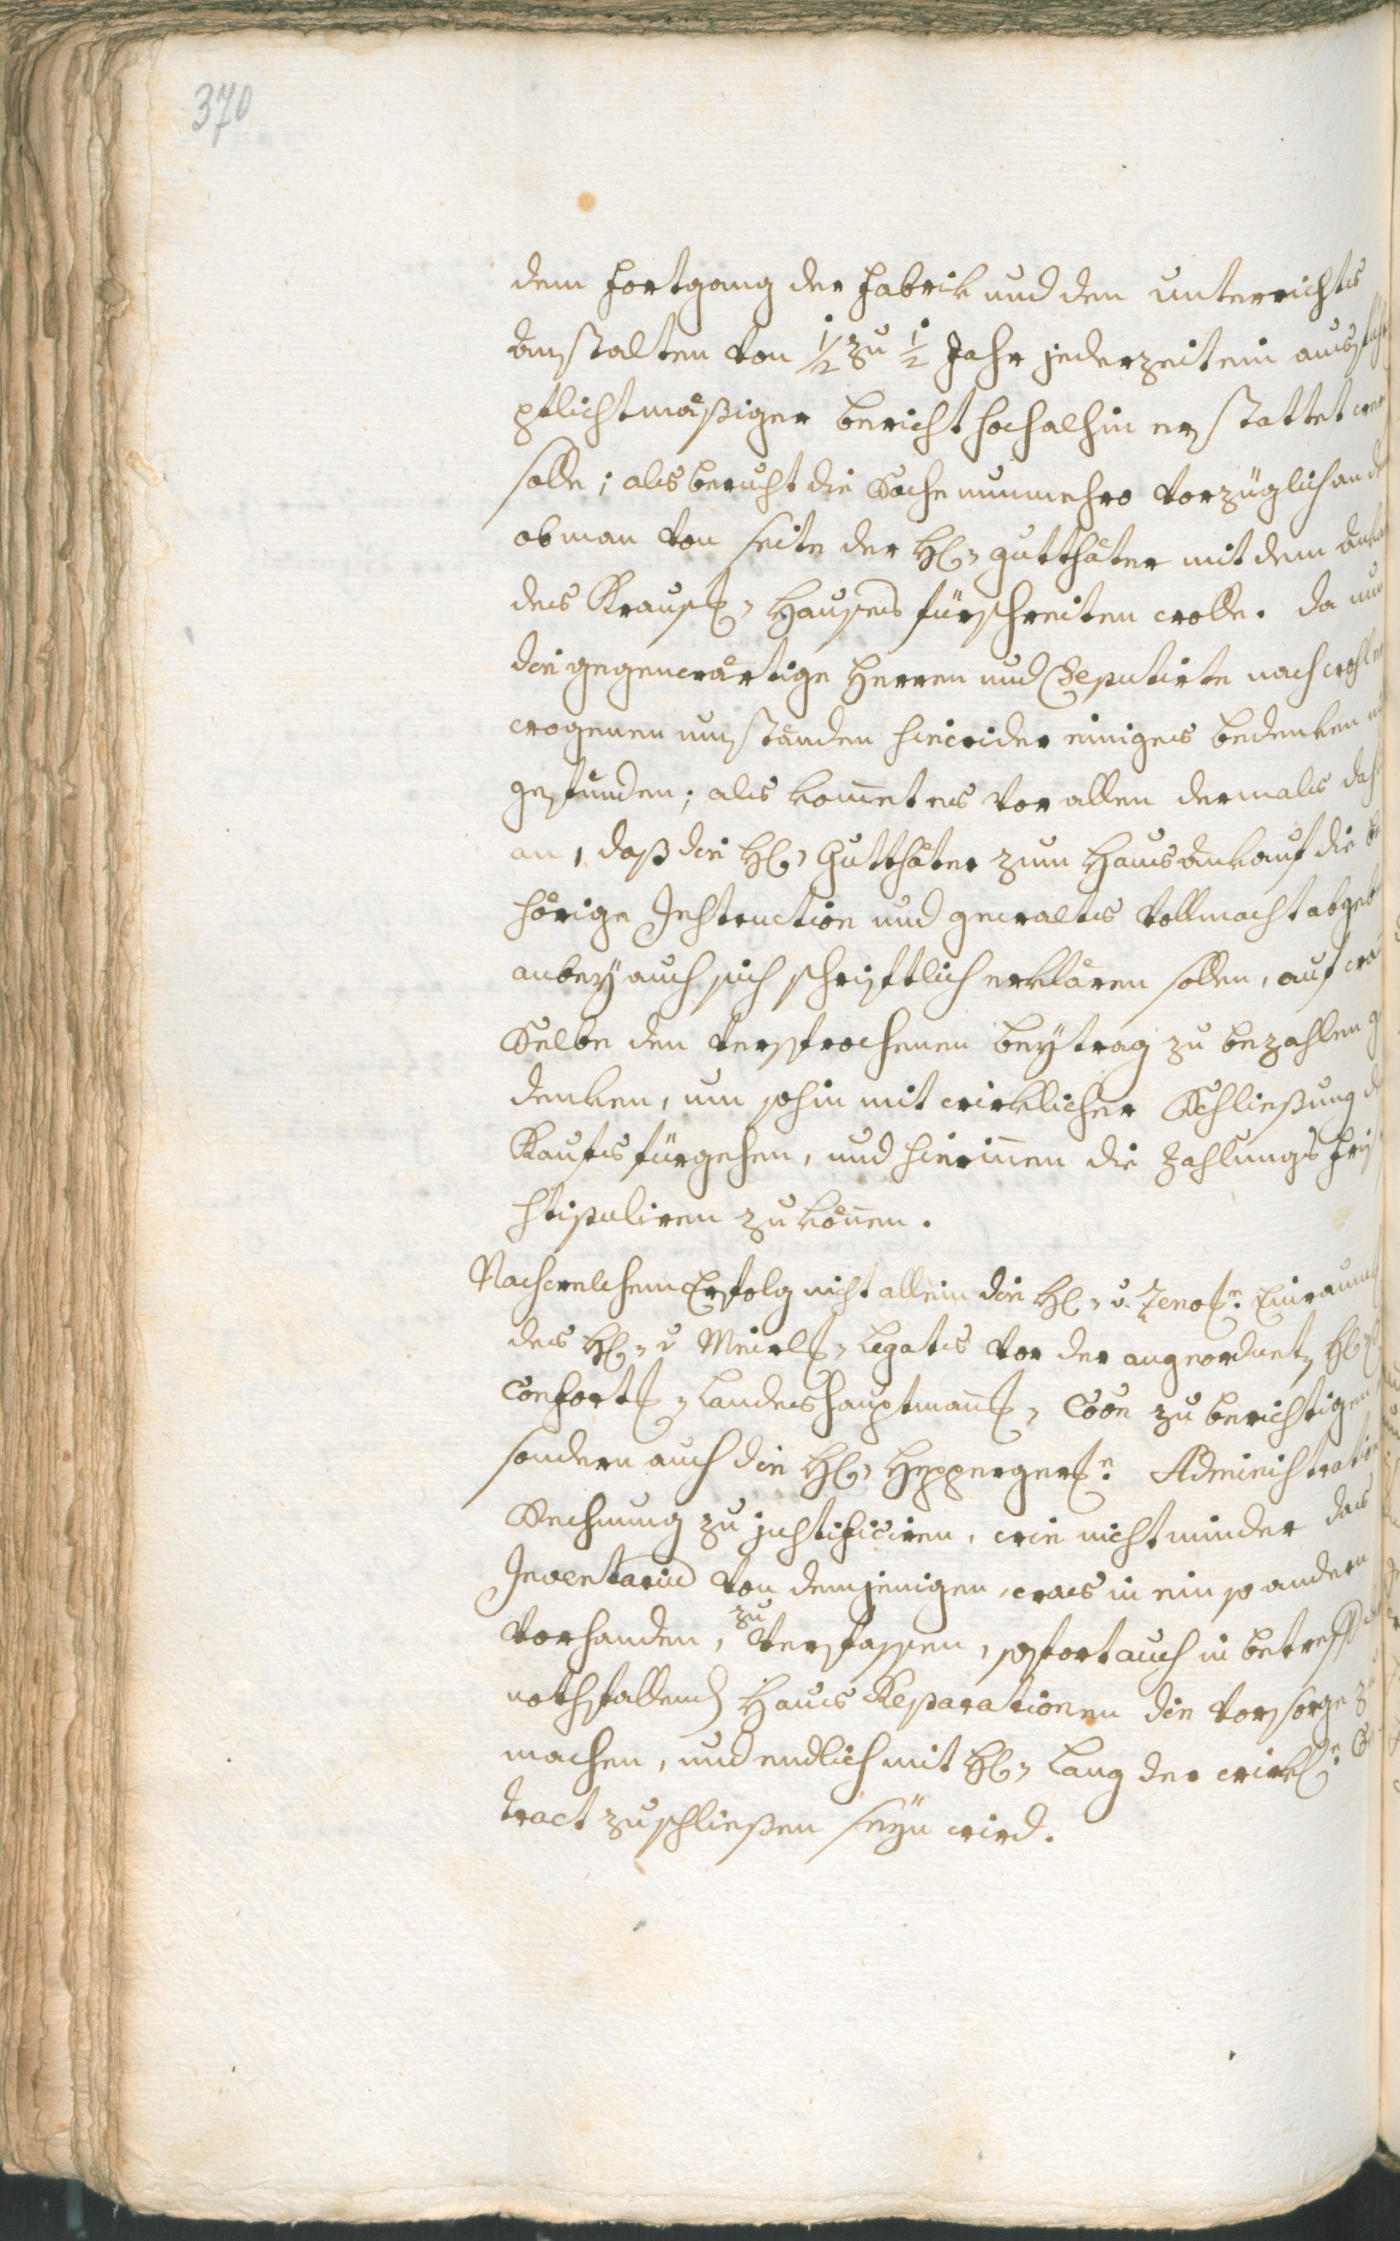 370
dem Fortgang der Fabrik und den Unterrichts
Anstalten von 1/2 zu 1/2 Jahr jederzeit ein
pflichtmäßiger Bericht hochalhin erstattet
solle; als beruht die Sache nunmehro vorzüglich an
ob man von Seite der H: Gutthäter mit dem
des Hauses fürschreiten wolle. Da
die gegenwärtige Herren und Deputirte nach
wogenen Umständen hiewider einiges Bedenken
gefunden; als kom̄et es vor allen dermals
an, daß die H: Gutthäter zum Haus Ankauf die
hörige Instruction und gewalts Vollmacht
anbey auch sich schriftlich erklären sollen, auf
Selbe den versprochenen Beytrag zu bezahlen
denken, um sohin mit wirklicher Schließung
Kaufs fürgehen, und hierin̄en die Zahlungs
stipuliren zu kön̄en.
Nach welchem Erfolg nicht allein die H: v:
des H: v Legats vor der angeordnet
zu berichtigen
sondern auch die H: Administration
Rechnung zu justificiren, wie nicht minder das
Inventarium von demjenigen, was in ein so andern
vorhanden, zu verfassen, sofort auch in betreff
nothfallend Haus Reparationen die Vorsorge zu
machen, und endlich mit H: Lang der
tract zu schließen seyn wird.